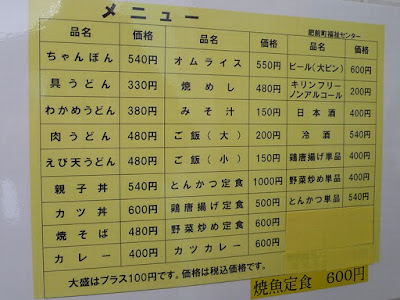 メニュー
肥前町福祉センター
品名 価格 品名 価格 品名 価格
ちゃんぽん 540円 オムライス 550円 ビール(大ビン) 600円
具うどん 330円 焼めし 480円 キリンフリー ノンアルコール 200円
わかめうどん 380円 みそ汁 150円 日本酒 400円
肉うどん 480円 ご飯(大) 200円 冷酒 540円
えび天うどん 480円 ご飯(小) 150円 鶏唐揚げ単品 400円
親子丼 540円 とんかつ定食 1000円 野菜炒め単品 400円
カツ丼 600円 鶏唐揚げ定食 500円 とんかつ単品 540円
焼そば 480円 野菜炒め定食 600円
カレー 400円 カツカレー 600円
大盛はプラス100円です。価格は税込価格です。
焼魚定食 600円